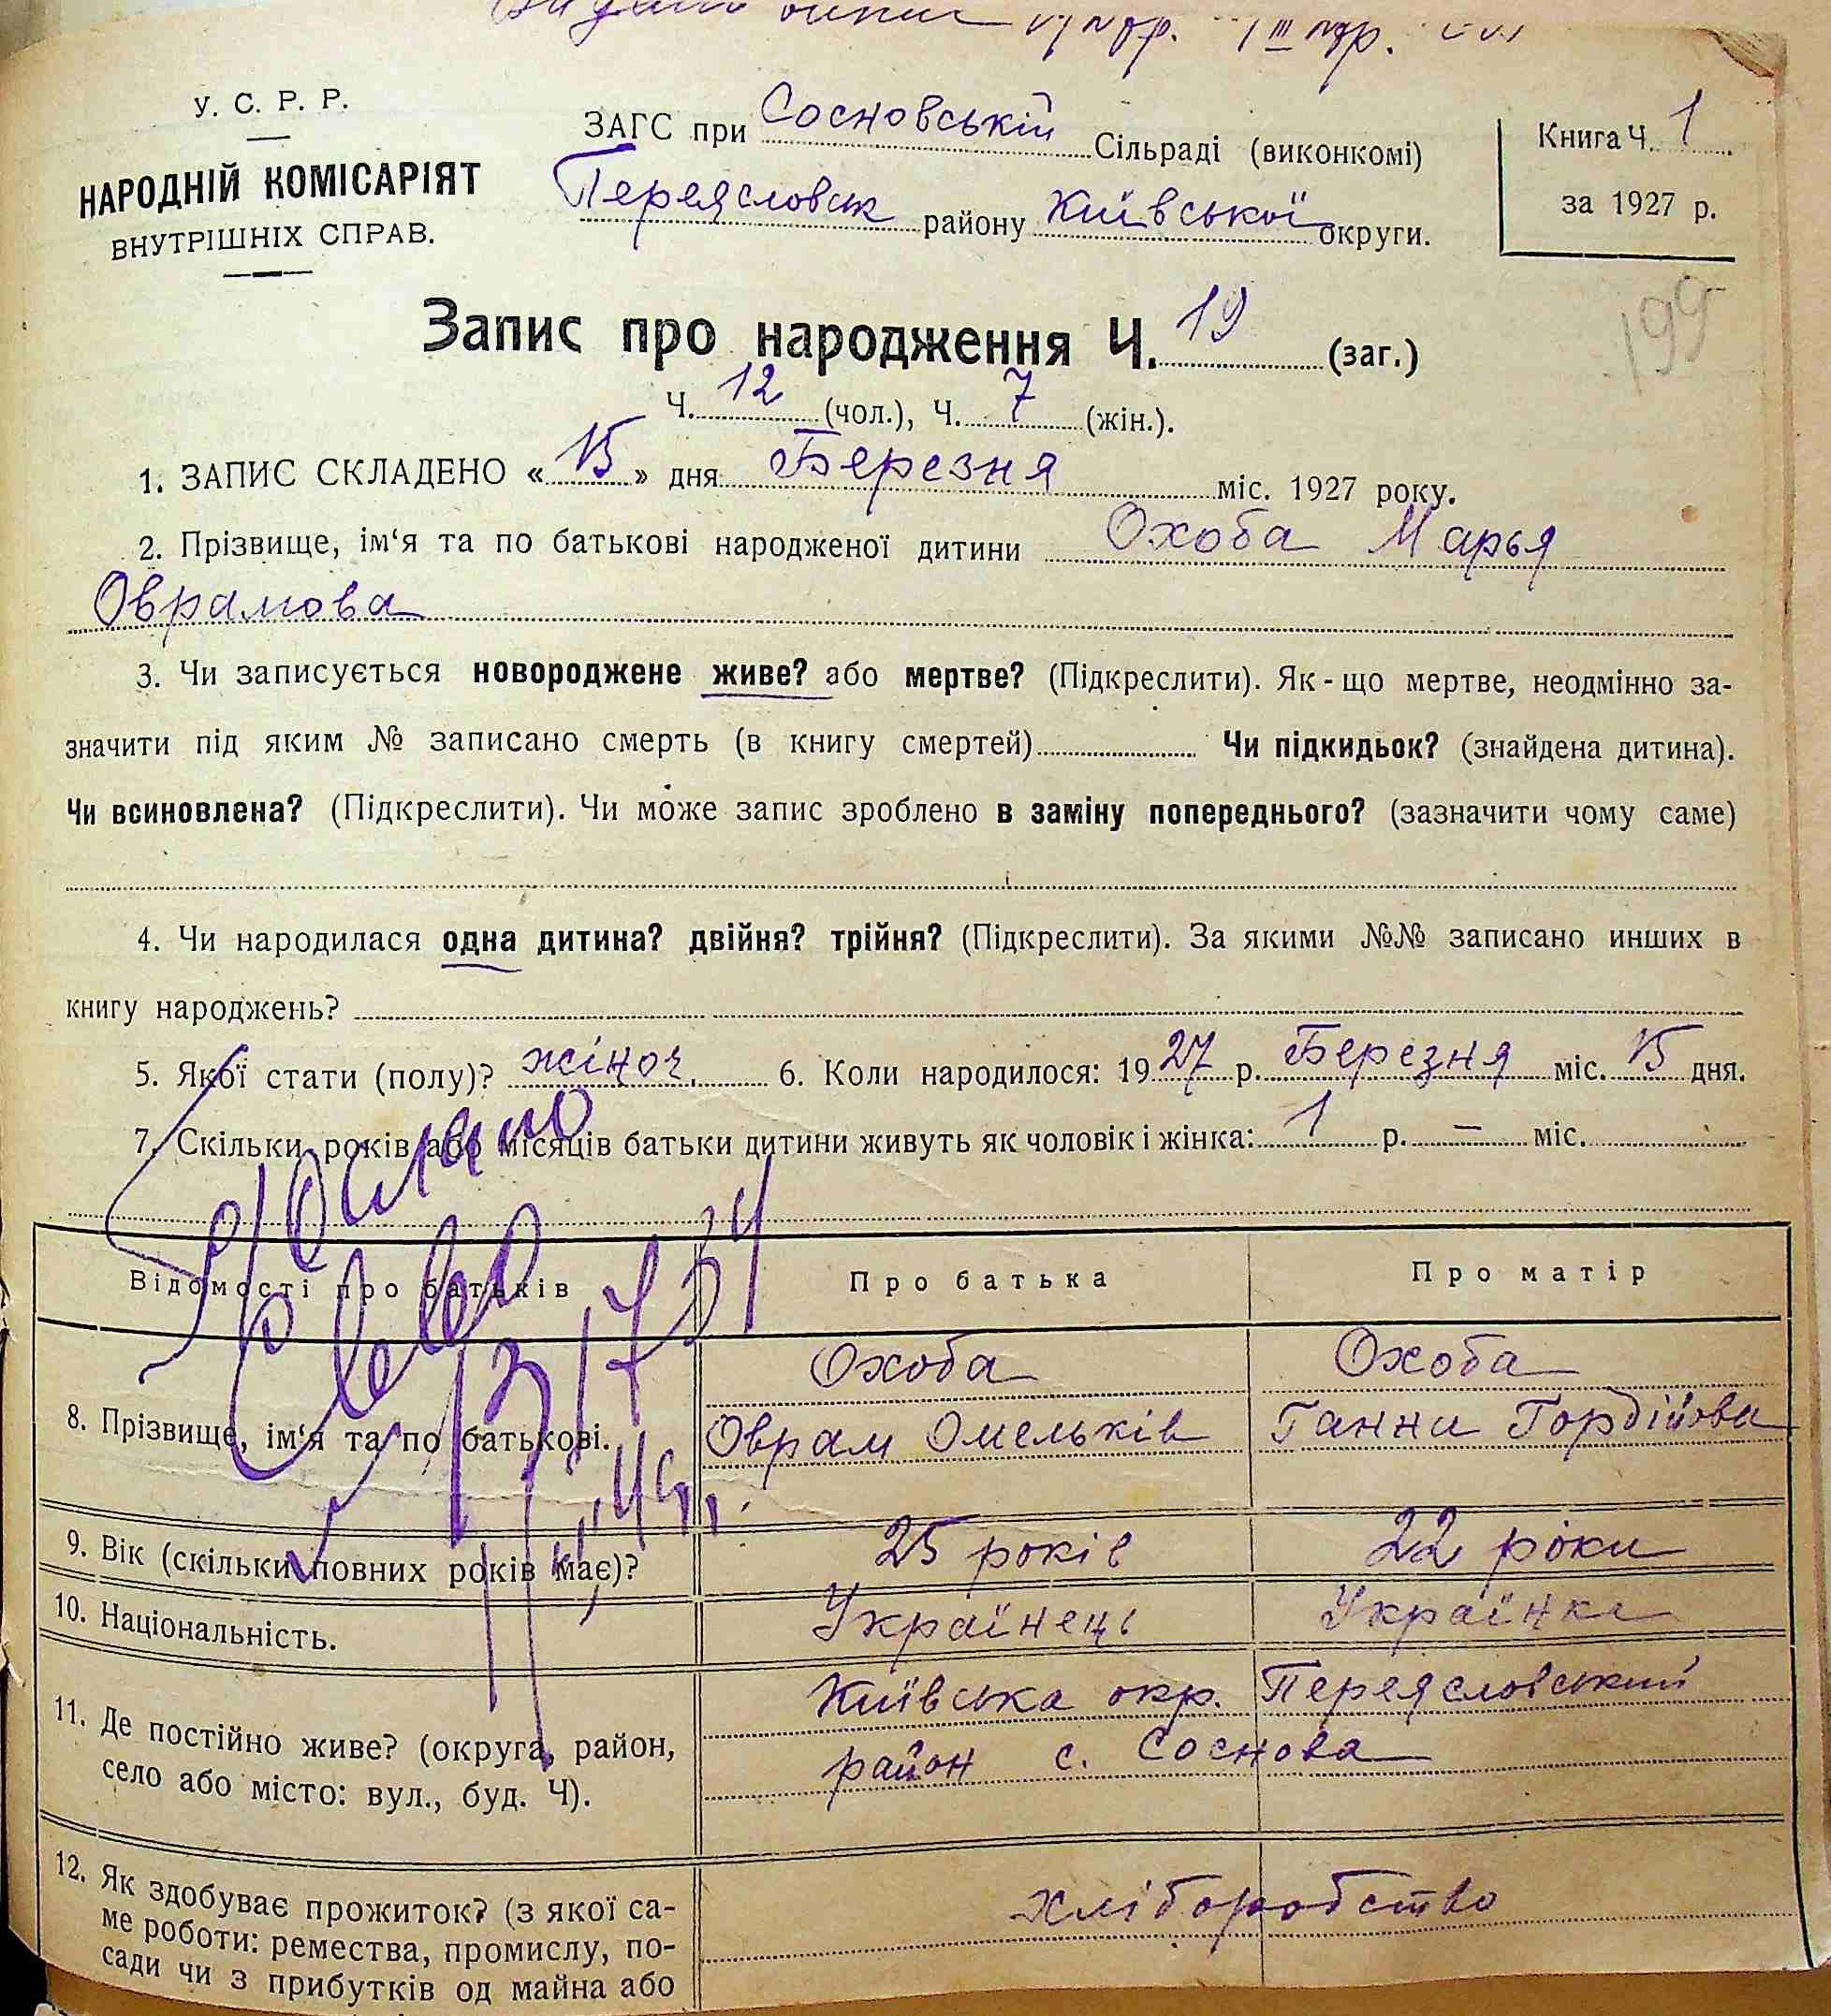 У. С. Р. Р.
НАРОДНІЙ КОМІСАРІЯТ
ВНУТРІШНІХ СПРАВ.
ЗАГС при Сосновській Сільраді (виконкомі)
Переясловськ району Київської округи.
Книга Ч. 1
за 1927 р.
199
Запис про народження Ч. 19 (заг.)
Ч. 12 (чол.), Ч. 7 (жін.).
1. ЗАПИС СКЛАДЕНО «15» дня Березня міс. 1927 року.
2. Прізвище, ім‘я та по батькові народженої дитини Охоба Марья
Оврамова
3. Чи записується новороджене живе? або мертве? (Підкреслити). Як-що мертве, неодмінно за-
значити під яким № записано смерть (в книгу смертей) Чи підкидьок? (знайдена дитина).
Чи всиновлена? (Підкреслити). Чи може запис зроблено в заміну попереднього? (зазначити чому саме)
4. Чи народилася одна дитина? двійня? трійня? (Підкреслити). За якими №№ записано инших в
книгу народжень?
5. Якої стати (полу)? жіноч. 6. Коли народилося: 1927 р. Березня міс. 15 дня.
7. Скільки років або місяців батьки дитини живуть як чоловік і жінка: 1 р. — міс.
Відомості про батьків Про батька Про матір
Охоба Охоба
8. Прізвище, ім‘я та по батькові. Оврам Омельків Ганни Гордійова
9. Вік (скільки повних років має)? 25 років 22 роки
10. Національність. Українець Українка
11. Де постійно живе? (округа, район, Київська окр. Переясловський
село або місто: вул., буд. Ч). район с. Соснова
12. Як здобуває прожиток? (з якої са- хліборобство
ме роботи: ремества, промислу, по-
сади чи з прибутків од майна або